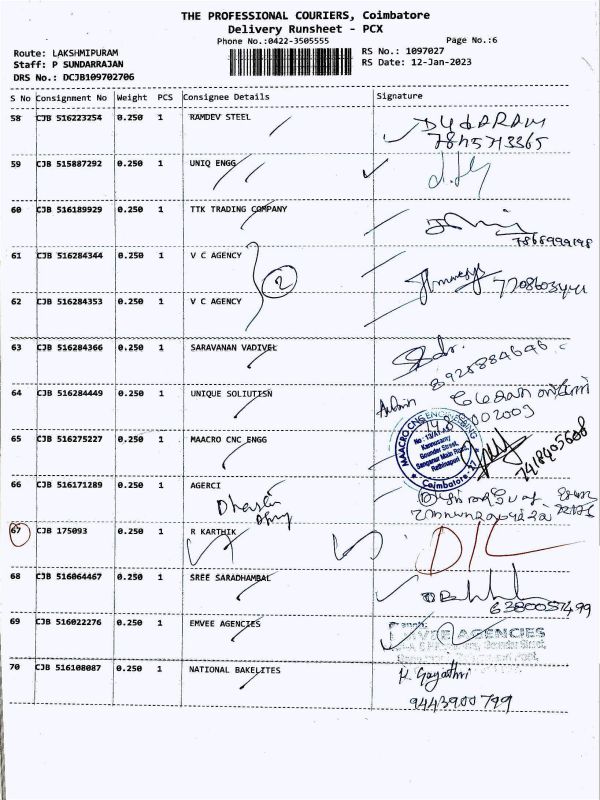 THE PROFESSIONAL COURIERS, Coimbatore
Delivery Runsheet - PCX
Phone No.:0422-3505555 Page No.:6
Route: LAKSHMIPURAM RS No.: 1097027
Staff: P SUNDARRAJAN RS Date: 12-Jan-2023
DRS No.: DCJB109702706
S No Consignment No Weight PCS Consignee Details Signature
58 CJB 516223254 0.250 1 RAMDEV STEEL
59 CJB 515887292 0.250 1 UNIQ ENGG
60 CJB 516189929 0.250 1 TTK TRADING COMPANY
61 CJB 516284344 0.250 1 V C AGENCY
2
62 CJB 516284353 0.250 1 V C AGENCY
63 CJB 516284366 0.250 1 SARAVANAN VADIVEL
64 CJB 516284449 0.250 1 UNIQUE SOLIUTISN
65 CJB 516275227 0.250 1 MAACRO CNC ENGG
MAACRO CNC ENGINEERING
Kannusamy
Gounder Street,
Sanganur Main Road,
Rathinapuri
Coimbatore - 27
7418405608
66 CJB 516171289 0.250 1 AGERCI
67 CJB 175093 0.250 1 R KARTHIK
D/L
68 CJB 516064467 0.250 1 SREE SARADHAMBAL
6380057499
69 CJB 516022276 0.250 1 EMVEE AGENCIES
EMVEE AGENCIES
70 CJB 516108087 0.250 1 NATIONAL BAKELITES
K. Gayathri
9443900799